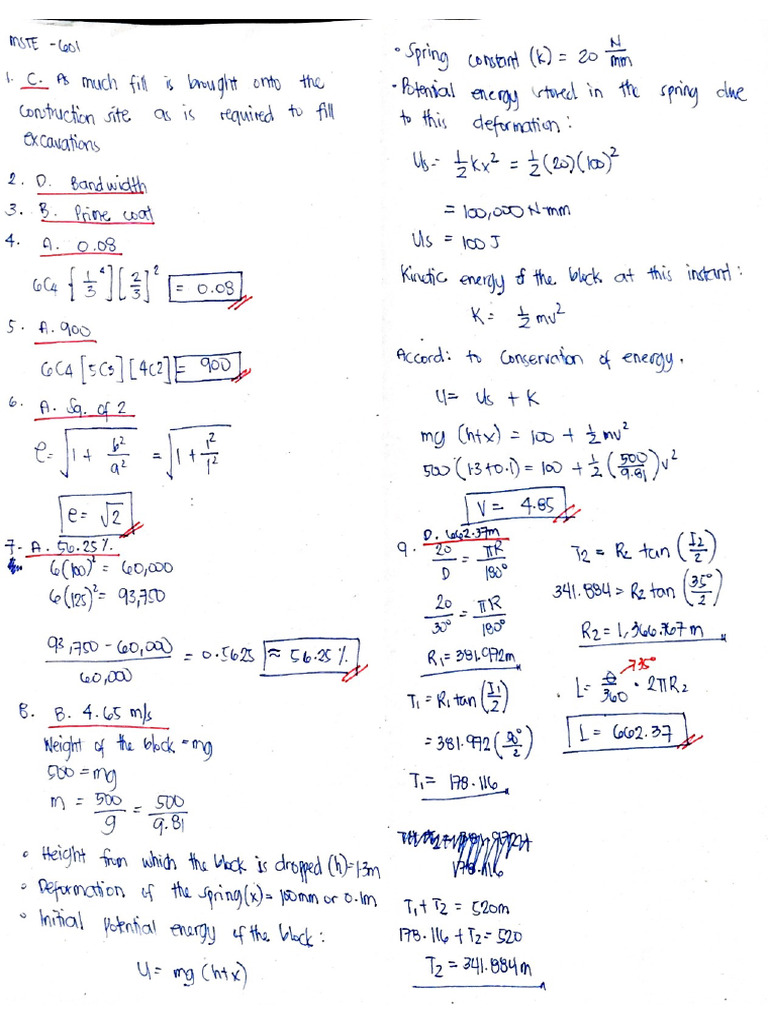 MSTE - 601
1. C. As much fill is brought onto the
construction site as is required to fill
excavations
2. D. Bandwidth
3. B. Prime coat
4. A. 0.08
6C4 [1/3^4][2/3]^2 = 0.08
5. A. 900
6C4 [5C3][4C2] = 900
6. A. Sq. of 2
e = √(1 + b²/a²) = √(1 + 1²/1²)
e = √2
7. A. 56.25%
6(100)² = 60,000
6(125)² = 93,750
(93,750 - 60,000)/60,000 = 0.5625 ≈ 56.25%
8. B. 4.65 m/s
Weight of the block = mg
500 = mg
m = 500/g = 500/9.81
• Height from which the block is dropped (h) = 1.3m
• Deformation of the spring (x) = 100mm or 0.1m
• Initial potential energy of the block:
U = mg (h+x)
• Spring constant (k) = 20 N/mm
• Potential energy stored in the spring due
to this deformation:
Us = 1/2 Kx² = 1/2 (20)(100)²
= 100,000 N-mm
Us = 100 J
Kinetic energy of the block at this instant:
K = 1/2 mv²
Accord: to Conservation of energy.
U = Us + K
mg (h+x) = 100 + 1/2 mv²
500 (1.3+0.1) = 100 + 1/2 (500/9.81) v²
V = 4.85
9. D. 662.37m
20/D = πR/180°
20/30° = πR/180°
R1 = 381.972m
T1 = R1 tan (I1/2)
= 381.972 (50°/2)
T1 = 178.116
178.116
T1 + T2 = 520m
178.116 + T2 = 520
T2 = 341.884m
T2 = R2 tan (I2/2)
341.884 = R2 tan (35°/2)
R2 = 1,366.767 m
35°
L = θ/360 • 2πR2
L = 662.37